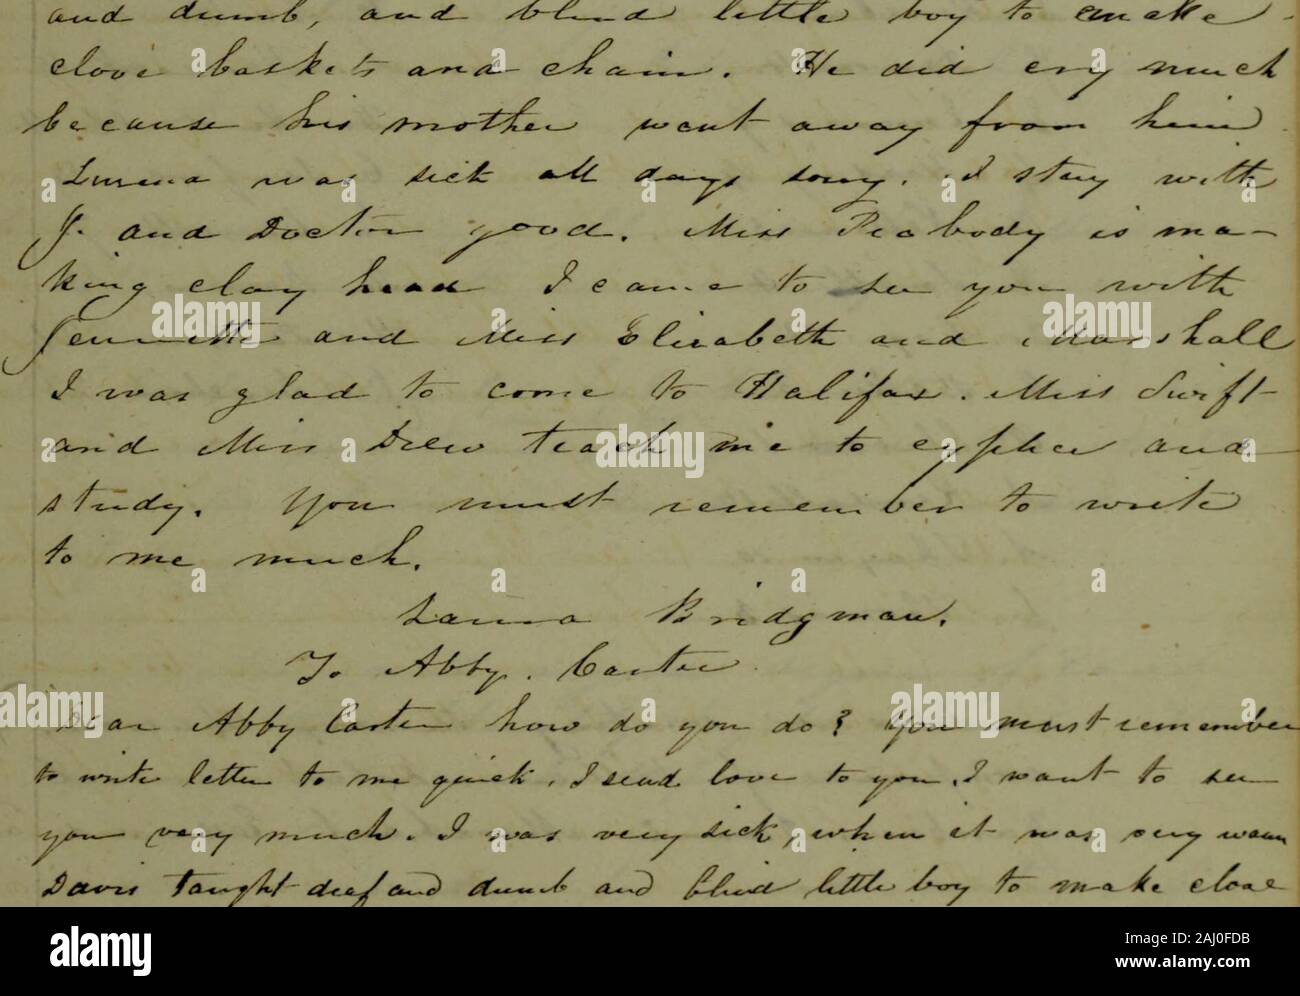 and dumb, and blind little boy to make
clove baskets and chain. He did cry much
because his mother went away from him
Lurena was sick all days sorry. I stay with
J. and Doctor good. Miss Peabody is ma-
king clay head I came to see you with
Jennette and Miss Elizabeth and Marshall
I was glad to come to Halifax. Miss Swift
and Miss Drew teach me to cypher and
study. You must remember to write
to me much.
Laura Bridgman.
To Abby. Carter
Dear Abby Carter how do you do? You must remember
to write letter to me quick. I send love to you. I want to see
you very much. I was very sick, when it was very warm
Davis taught deaf and dumb and blind little boy to make clove
a alamy
alamy
Image ID: 2AJ0FDB
www.alamy.com